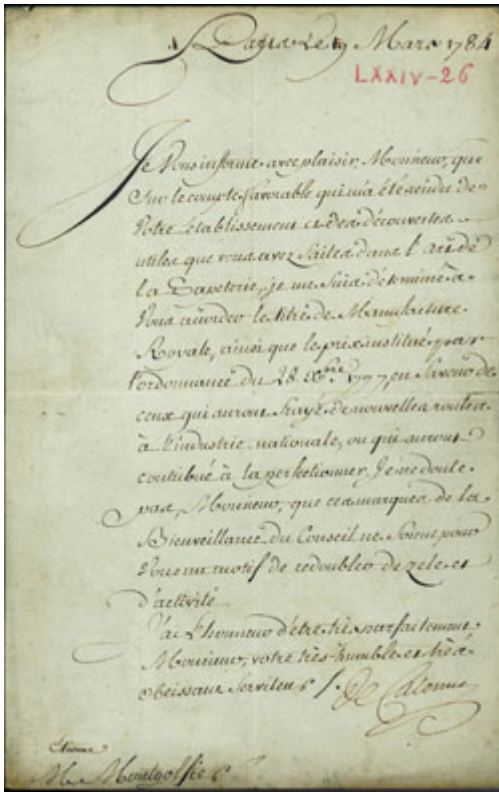 à Paris Le 19 Mars 1784
LXXIV-26
Je Vous informe avec plaisir, Monsieur, que
sur le compte favorable qui m'a été rendu de
Votre Etablissement et des découvertes
utiles que vous avez faites dans l'art de
la Papeterie, je me suis déterminé à
Vous accorder le titre de Manufacture
Royale, ainsi que le prix institué par
l'ordonnance du 28 Xbre 1777, en faveur de
ceux qui auront frayé de nouvelles routes
à l'industrie nationale, ou qui auront
contribué à la perfectionner. Je ne doute
pas, Monsieur, que ces marques de la
Bienveillance du Conseil ne soient pour
Vous un motif de redoubler de zele et
d'activité
J'ai L'honneur d'être très parfaitement
Monsieur, votre très humble et très
obeissant Serviteur /. De Calonne
Etienne
M. Montgolfier